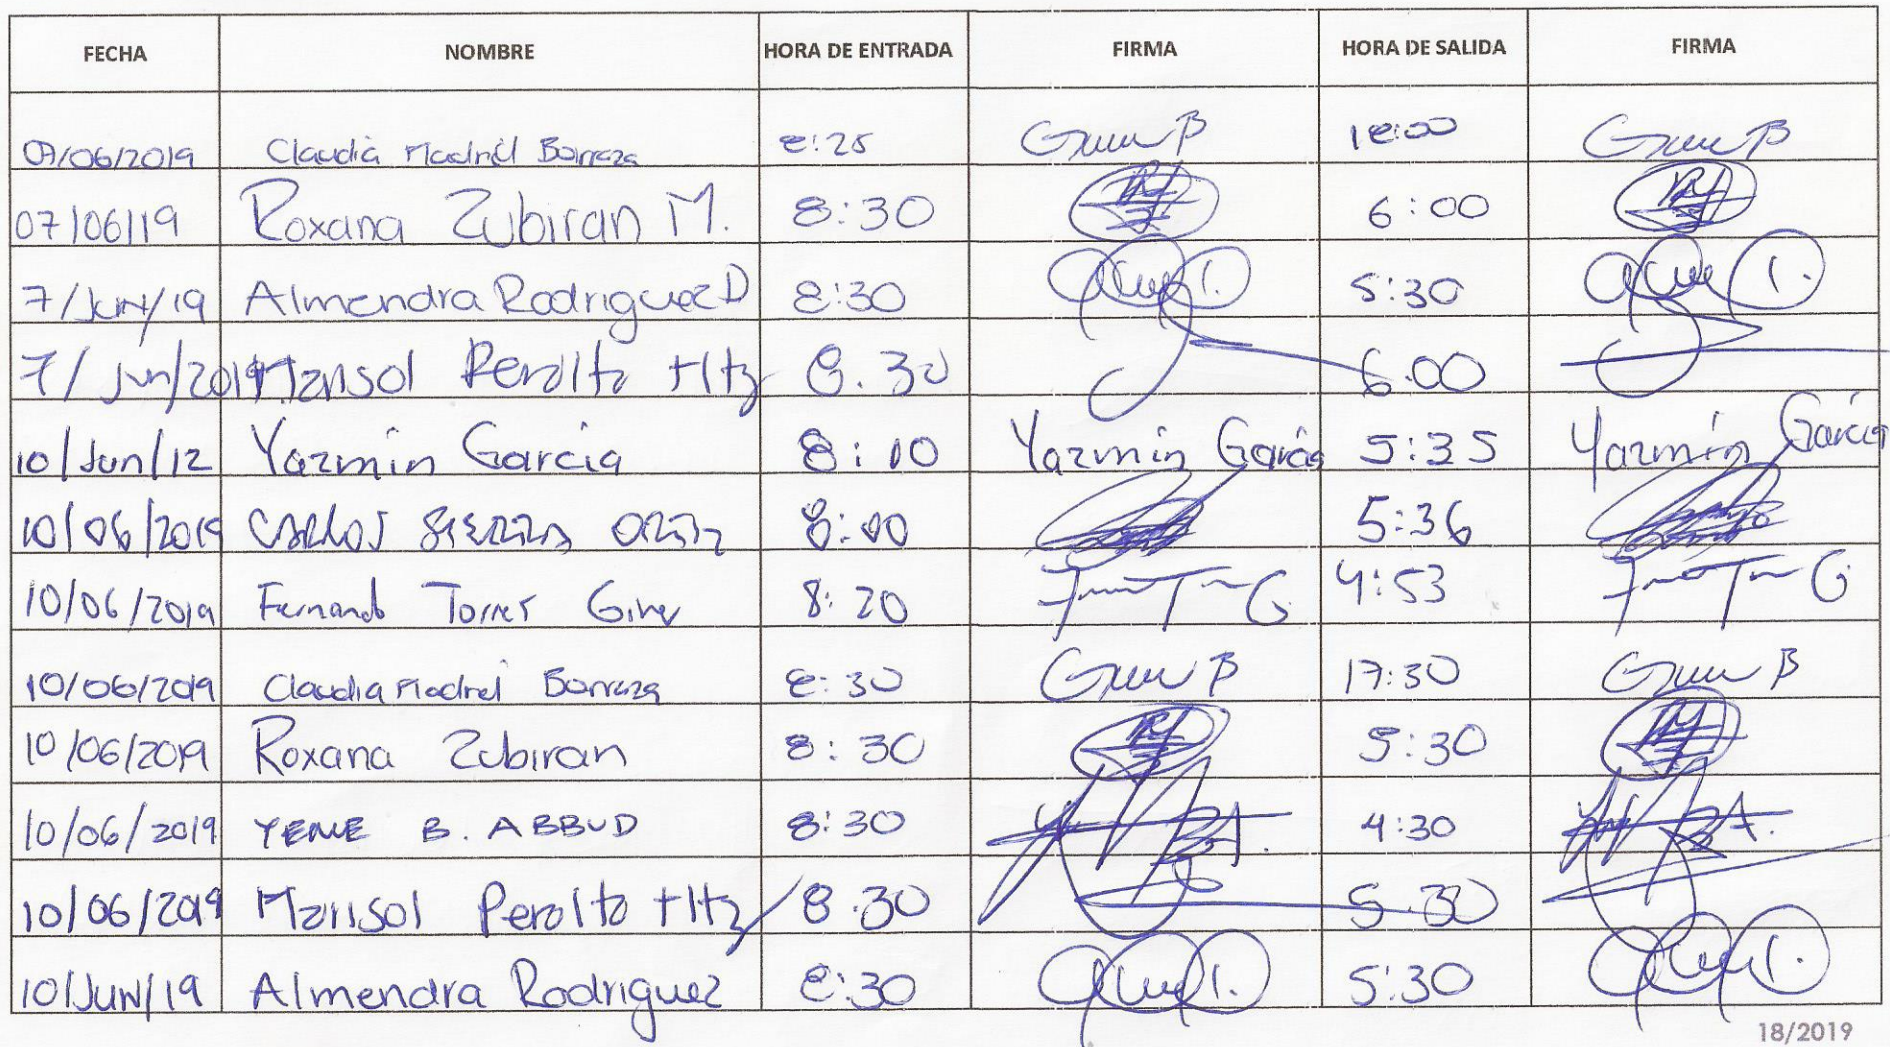 FECHA NOMBRE HORA DE ENTRADA FIRMA HORA DE SALIDA FIRMA
07/06/2019 Claudia Madrid Barraza 8:25 18:00
07/06/19 Roxana Zubiran M. 8:30 6:00
7/Jun/19 Almendra Rodriguez D 8:30 5:30
7/Jun/2019 Marisol Peralta Htz 8.30 6.00
10/Jun/12 Yazmin Garcia 8:10 Yazmin Garcia 5:35 Yazmín García
10/06/2019 CARLOS SIERRA ORTIZ 8:00 5:36
10/06/2019 Fernando Torres 8:20 4:53
10/06/2019 Claudia Madrid Barraza 8:30 17:30
10/06/2019 Roxana Zubiran 8:30 5:30
10/06/2019 YEME B. ABBUD 8:30 4:30
10/06/2019 Marisol Peralta Htz 8.30 5.30
10/JUN/19 Almendra Rodriguez 8:30 5:30
18/2019